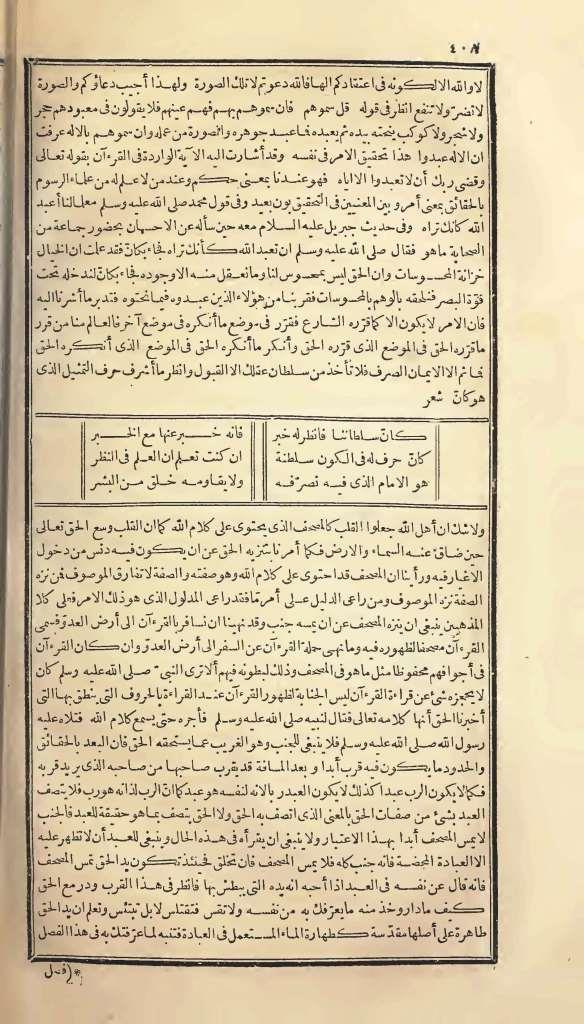 ٤٠٨
لا والله الا لكونه فى اعتقادكم الها فالله دعوتم لا تلك الصورة ولهذا أجيب دعاؤكم والصورة
لا تضر ولا تنفع انظر فى قوله قل سموهم فان سموهم بهم فهم عينهم فلا يقولون فى معبودهم حجر
ولا شجر ولا كوكب ينحته بيده ثم يعبده فما عبد جوهره والصورة من عمله وان سموهم بالاله عرفت
ان الاله عبدوا هذا تحقيق الامر فى نفسه وقد أشارت اليه الآية الواردة فى القرءآن بقوله تعالى
وقضى ربك أن لا تعبدوا الا اياه فهو عندنا بمعنى حكم وعند من لا علم له من علماء الرسوم
بالحقائق بمعنى أمر وبين المعنيين فى التحقيق بون بعيد وفى قول محمد صلى الله عليه وسلم معلما لنا أعبد
الله كانك تراه وفى حديث جبريل عليه السلام معه حين سأله عن الاحسان بحضور جماعة من
الصحابة ما هو فقال صلى الله عليه وسلم ان تعبد الله كأنك تراه فجاء بكأن فقد علمت ان الخيال
خزانة المحسوسات وان الحق ليس بمحسوس لنا وما نعقل منه الا وجوده فجاء بكأن لندخله تحت
قوة البصر فنلحقه بالوهم بالمحسوسات فقربنا من هؤلاء الذين عبدوه فيما نحتوه فتدبر ما أشرنا اليه
فان الامر لا يكون الا كما قرره الشارع فقرر فى موضع ما أنكره فى موضع آخر فالعالم منا من قرر
ما قرره الحق فى الموضع الذى قرره الحق وأنكر ما أنكره الحق فى الموضع الذى أنكره الحق
فما ثم الا الايمان الصرف فلا تأخذ من سلطان عقلك الا القبول وانظر ما أشرف حرف التمثيل الذى
هو كأن شعر
كأن سلطاننا فانظر له خبر فانه خبر عنها مع الخبر
كأن حرف له فى الكون سلطنة ان كنت تعلم ان العلم فى النظر
هو الامام الذى فيه نصرفه ولا يقاومه خلق من البشر
ولا شك ان أهل الله جعلوا القلب كالمصحف الذى يحتوى على كلام الله كما ان القلب وسع الحق تعالى
حين ضاق عنه السماء والارض فكما أمرنا بتنزيه الحق عن ان يكون فيه دنس من دخول
الاغيار فيه ورأينا ان المصحف قد احتوى على كلام الله وهو صفته والصفة لا تفارق الموصوف فمن نزه
الصفة نزه الموصوف ومن راعى الدليل على أمر ما فقد راعى المدلول الذى هو ذلك الامر فعلى كلا
المذهبين ينبغى ان ينزه المصحف عن ان يمسه جنب وقد نهينا ان نسافر بالقرءآن الى أرض العدو فسمى
القرءآن مصحفا لظهوره فيه وما نهى حملة القرءآن عن السفر الى أرض العدو وان كان القرءآن
فى أجوافهم محفوظا مثل ما هو فى المصحف وذلك لبطونه فيهم ألا ترى النبى صلى الله عليه وسلم كان
لا يحجزه شئ عن قراءة القرءآن ليس الجنابة لظهور القرءآن عند القراءة بالحروف التى ينطق بها التى
أخبرنا الحق أنها كلامه تعالى فقال لنبيه صلى الله عليه وسلم فأجره حتى يسمع كلام الله فتلاه عليه
رسول الله صلى الله عليه وسلم فلا ينبغى للجنب وهو الغريب عما يستحقه الحق فان البعد بالحقائق
والحدود ما يكون فيه قرب أبدا وبعد المسافة قد يقرب صاحبها من صاحبه الذى يريد قربه
فكما لا يكون الرب عبدا كذلك لا يكون العبد ربا لانه لنفسه هو عبد كما ان الرب لذاته هو رب فلا يتصف
العبد بشئ من صفات الحق بالمعنى الذى اتصف به الحق ولا الحق يتصف بما هو حقيقة للعبد فالجنب
لا يمس المصحف أبدا بهذا الاعتبار ولا ينبغى ان يقرأه فى هذه الحال وينبغى للعبد أن لا تظهر عليه
الا العبادة المحضة فانه جنب كله فلا يمس المصحف فان تخلق فحينئذ تكون يد الحق تمس المصحف
فانه قال عن نفسه فى العبد اذا أحبه انه يده التى يبطش بها فانظر فى هذا القرب ودر مع الحق
كيف ما دار وخذ منه ما يعرفك به من نفسه ولا تقس فتفتلس لا بل تبتئس وتعلم ان يد الحق
طاهرة على أصلها مقدسة كطهارة الماء المستعمل فى العبادة فتنبه لما عرفتك به فى هذا الفصل